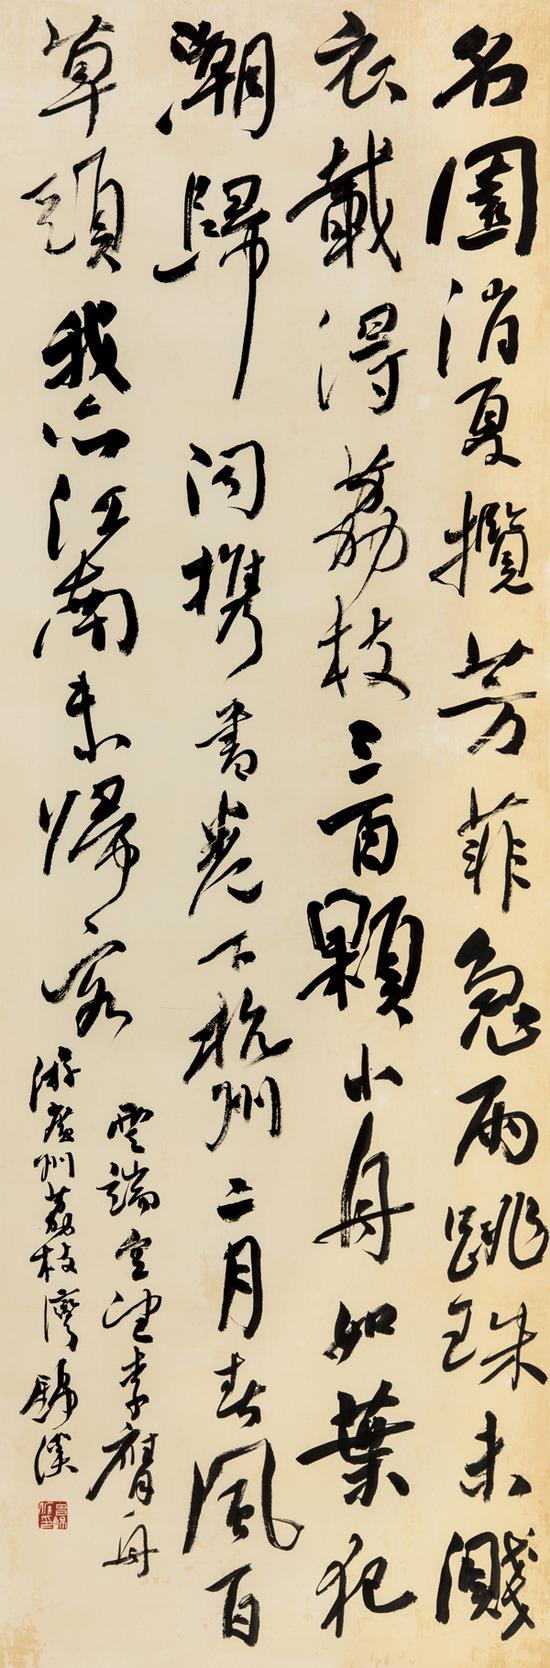 名園消夏攬芳菲急雨跳珠未濺
衣載得荔枝三百顆小舟如葉犯
潮歸 闻攜書卷下杭州二月春風百
草頭我亦江南未歸客
雲端空望李膺舟
游廣州荔枝灣 錦溪